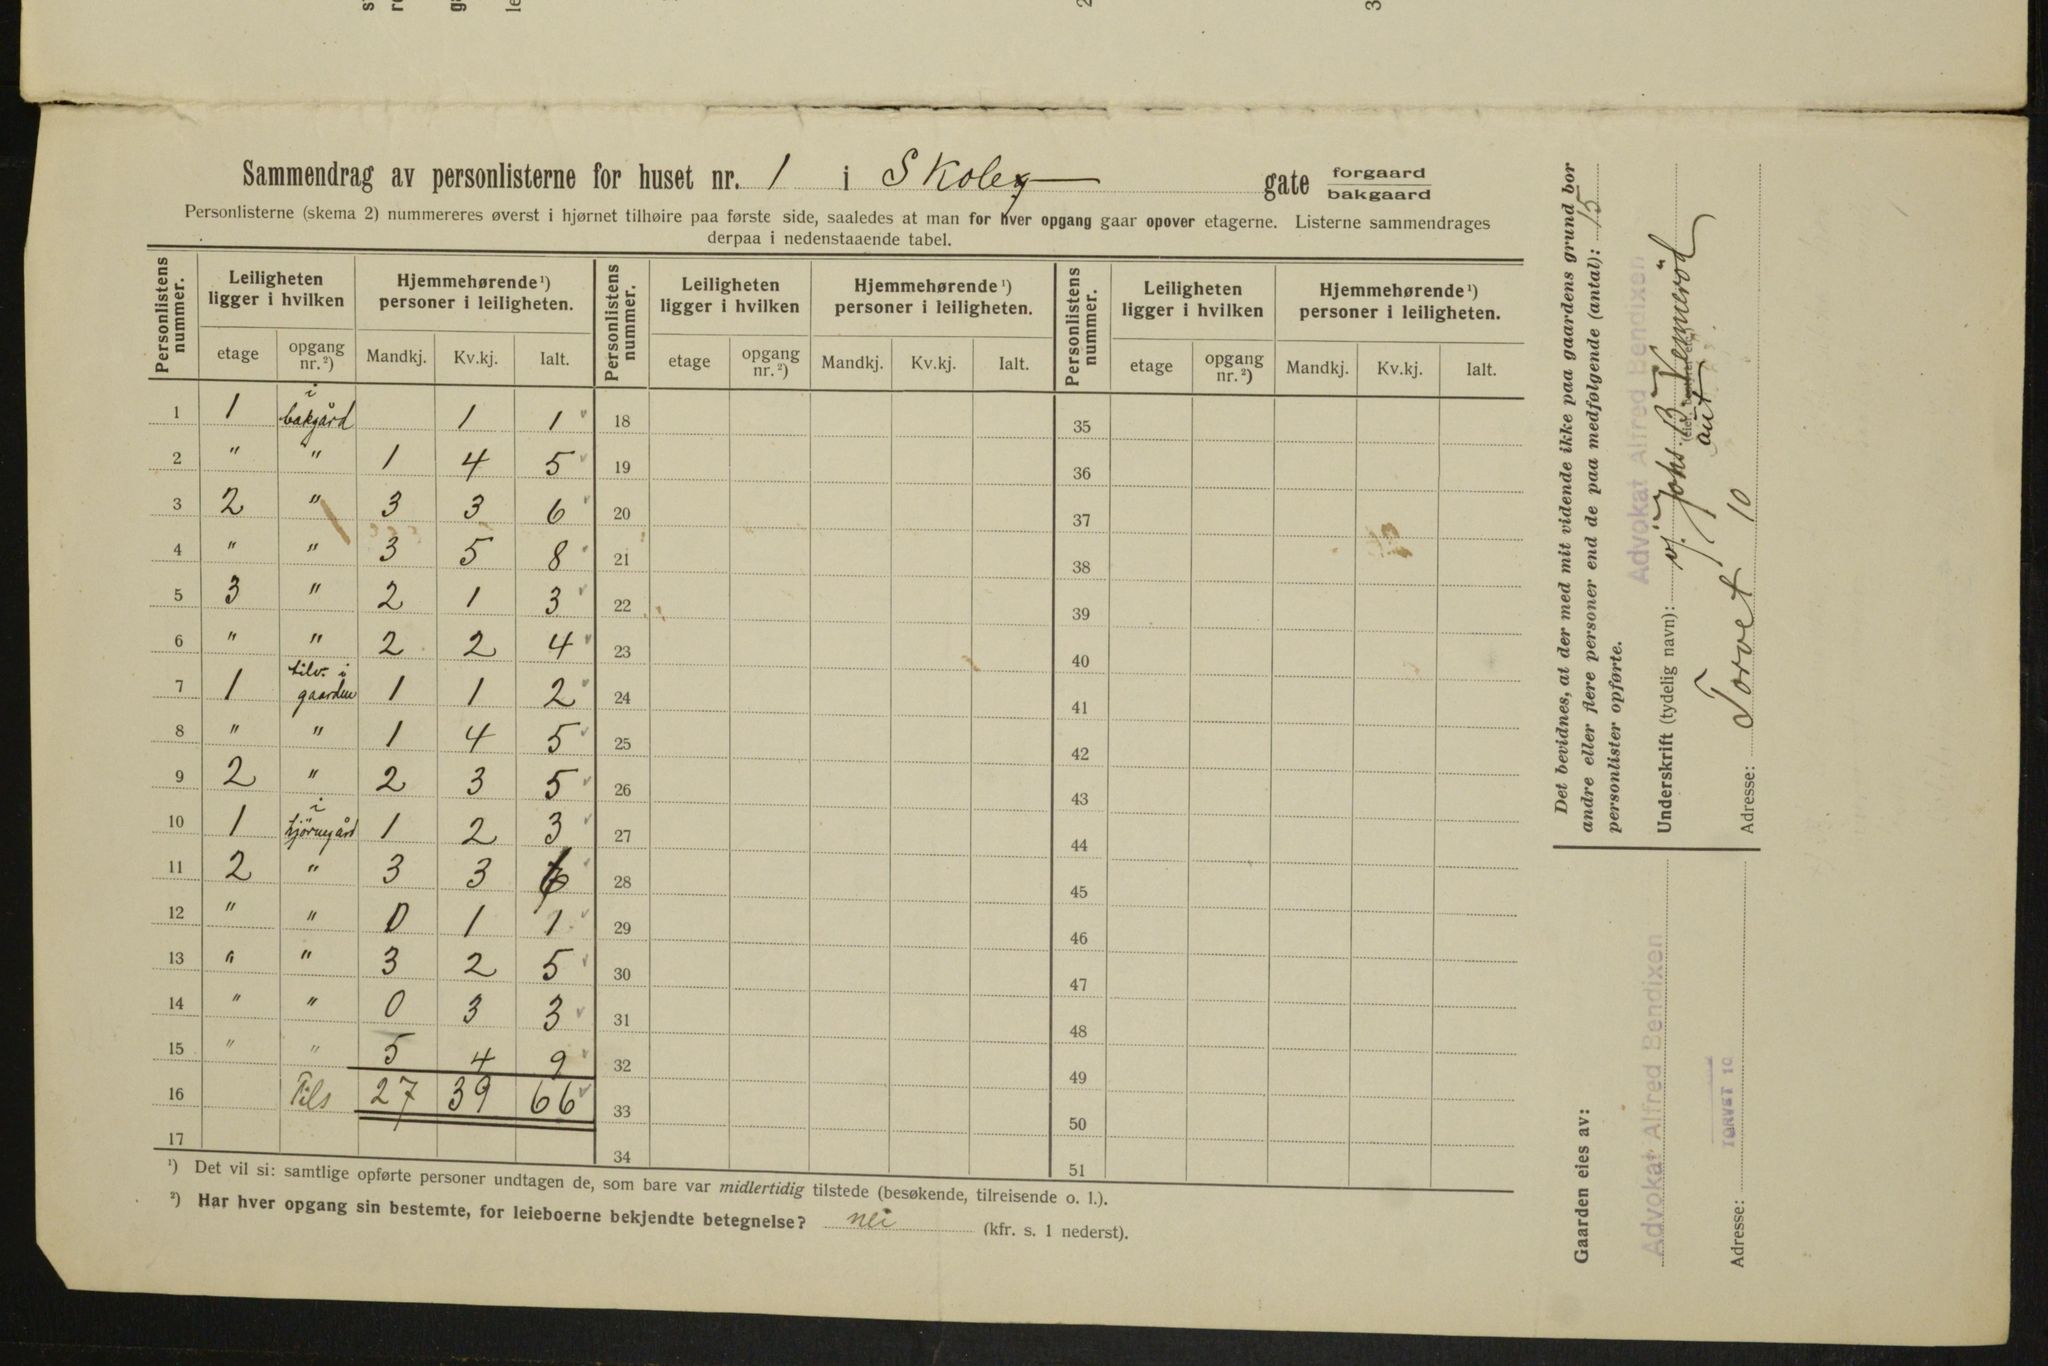 Sammendrag av personlisterne for huset nr. 1 i Skoleg gate forgaard bakgaard
Personlisterne (skema 2) nummereres øverst i hjørnet tilhøire paa første side, saaledes at man for hver opgang gaar opover etagerne. Listerne sammendrages
derpaa i nedenstaaende tabel.
Personlistens nummer. Leiligheten ligger i hvilken Hjemmehørende ¹) personer i leiligheten. Personlistens nummer. Leiligheten ligger i hvilken Hjemmehørende ¹) personer i leiligheten. Personlistens nummer. Leiligheten ligger i hvilken Hjemmehørende ¹) personer i leiligheten.
etage opgang nr. ²) Mandkj. Kv.kj. Ialt. etage opgang nr. ²) Mandkj. Kv.kj. Ialt. etage opgang nr. ²) Mandkj. Kv.kj. Ialt.
1 1 i bakgård 1 1 18 35
2 " " 1 4 5 19 36
3 2 " 3 3 6 20 37
4 " " 3 5 8 21 38
5 3 " 2 1 3 22 39
6 " " 2 2 4 23 40
7 1 tilv. i gaarden 1 1 2 24 41
8 " " 1 4 5 25 42
9 2 " 2 3 5 26 43
10 1 i hjørnegård 1 2 3 27 44
11 2 " 3 3 6 28 45
12 " " 0 1 1 29 46
13 " " 3 2 5 30 47
14 " " 0 3 3 31 48
15 " " 5 4 9 32 49
16 Tils 27 39 66 33 50
17 34 51
¹) Det vil si: samtlige opførte personer undtagen de, som bare var midlertidig tilstede (besøkende, tilreisende o. l.).
²) Har hver opgang sin bestemte, for leieboerne bekjendte betegnelse? nei (kfr. s. 1 nederst).
Det bevidnes, at der med mit vidende ikke paa gaardens grund bor
andre eller flere personer end de paa medfølgende (antal): 15
personlister opførte.
Advokat Alfred Bendixen
Underskrift (tydelig navn):
aut
Adresse: Torvet 10
Gaarden eies av:
Advokat Alfred Bendixen
TORVET 10
Adresse: